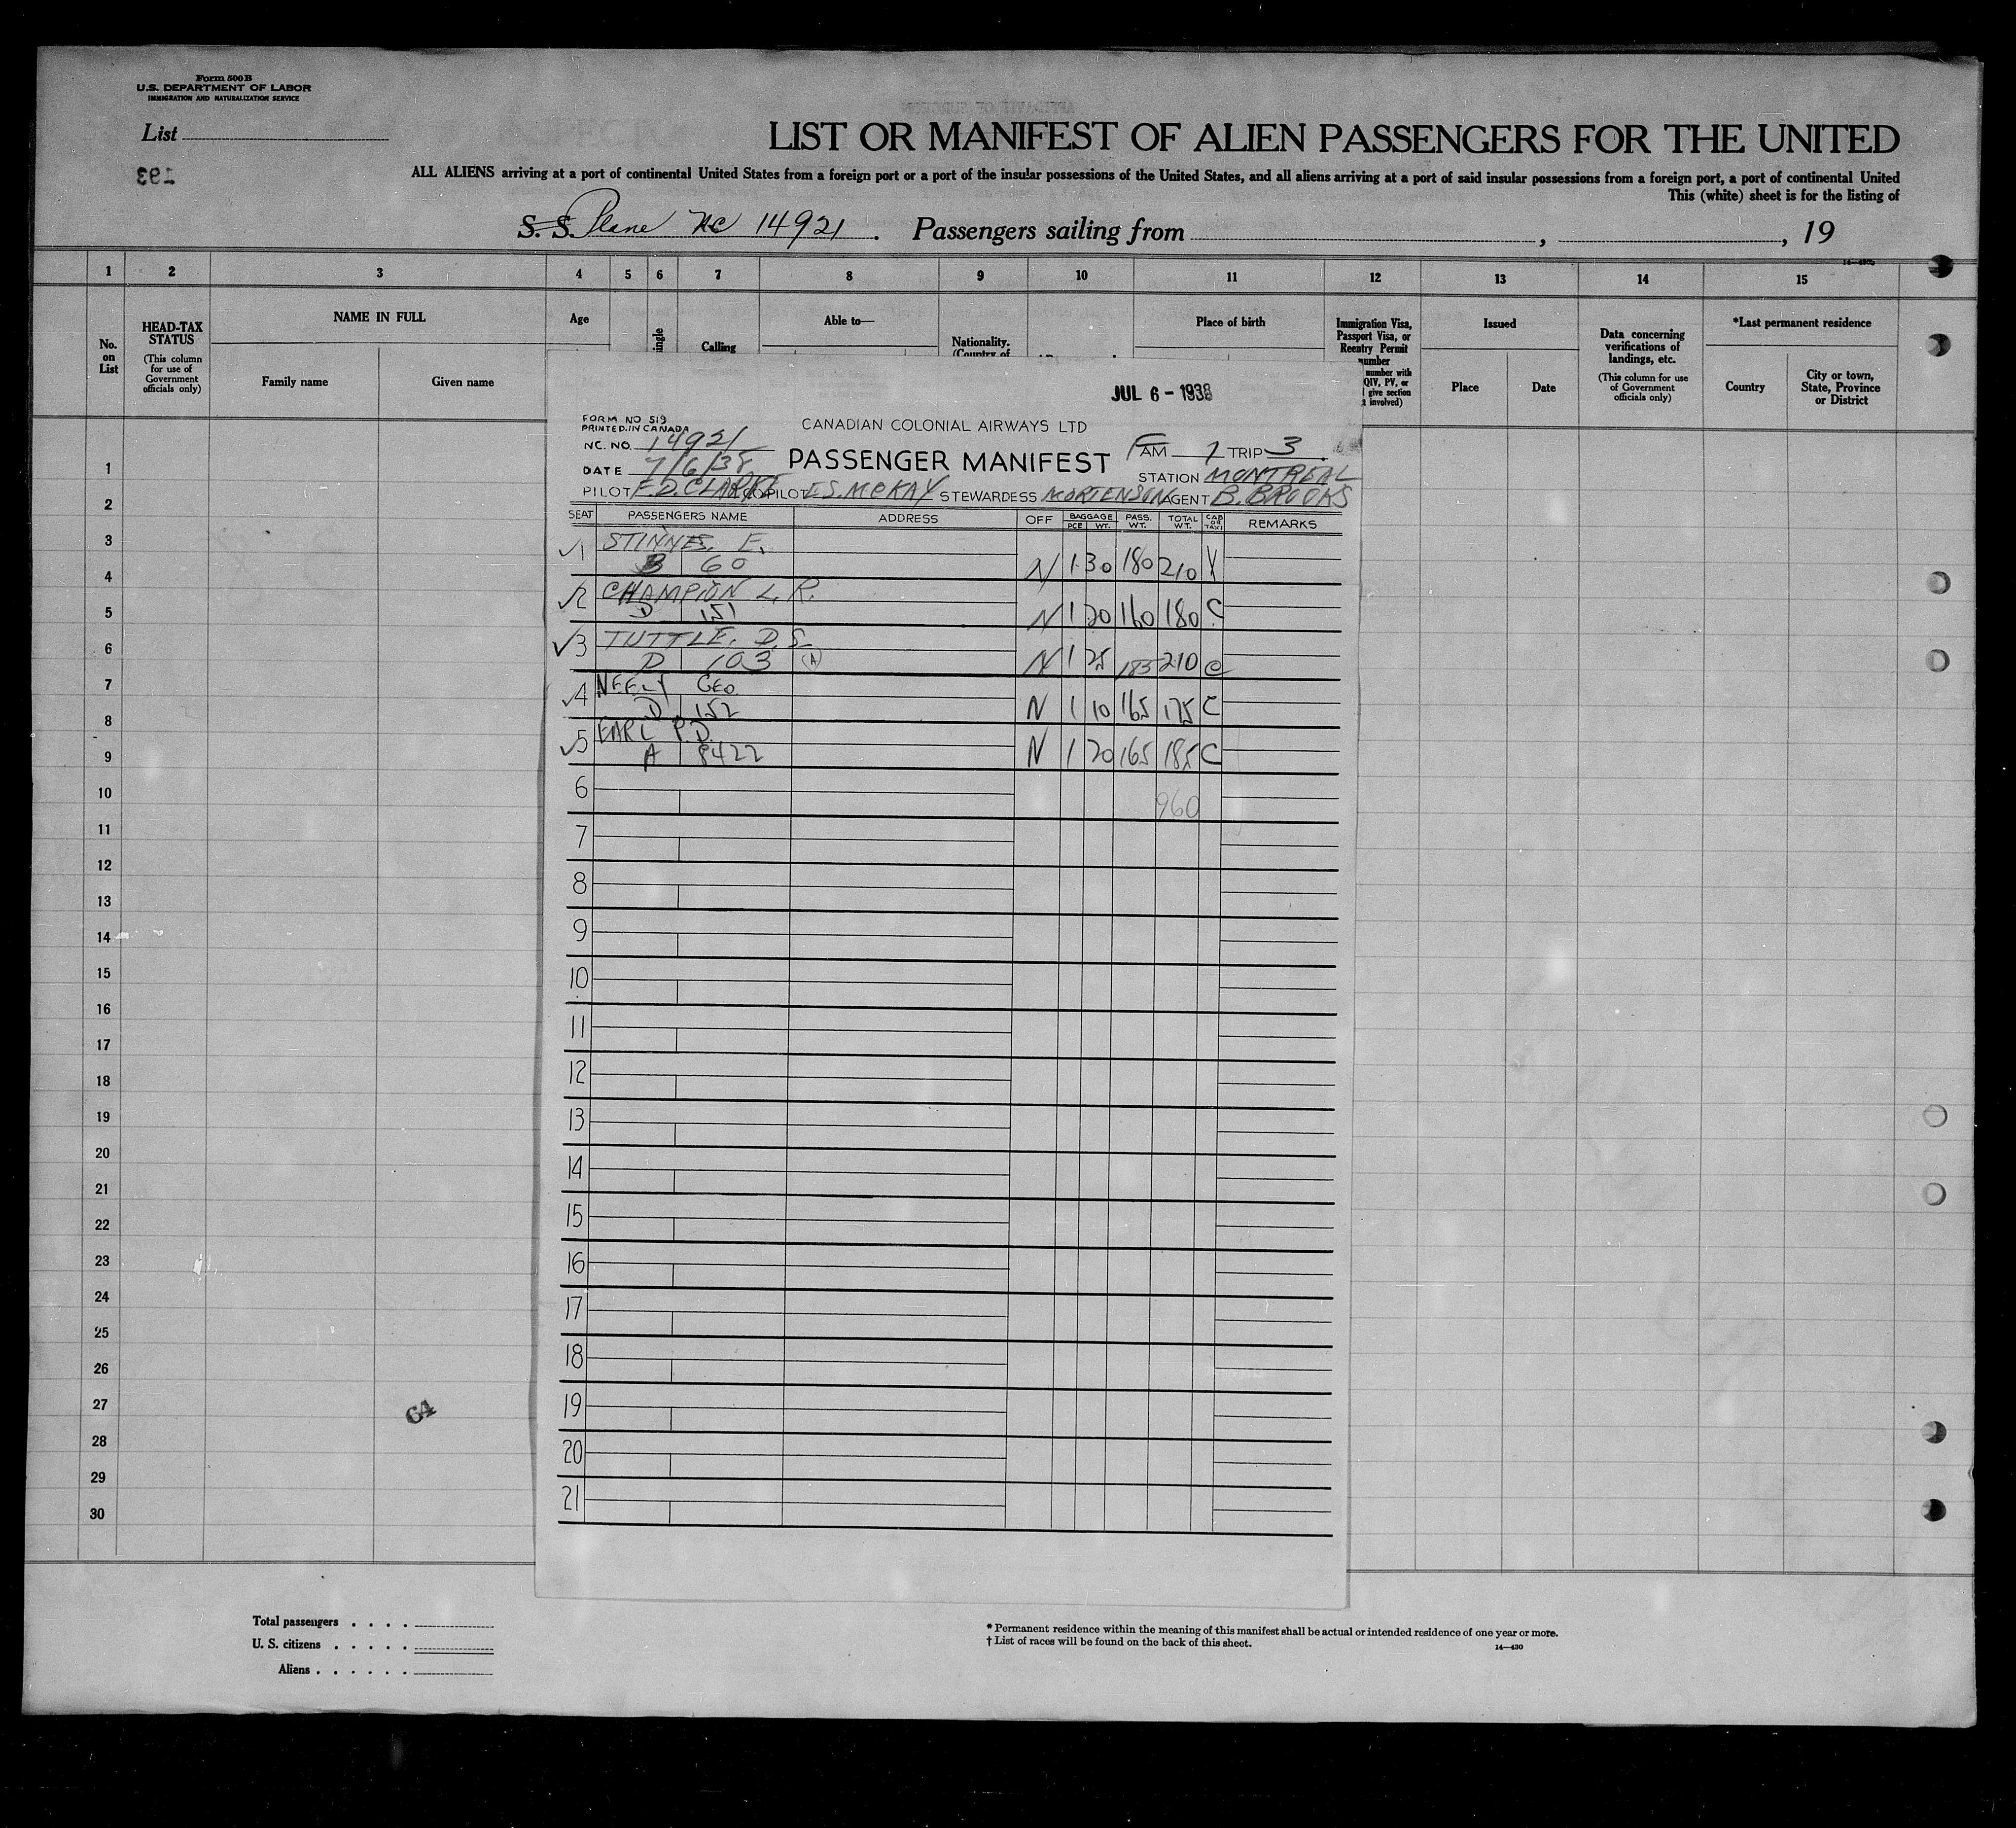 Form 500 B
U.S. DEPARTMENT OF LABOR
IMMIGRATION AND NATURALIZATION SERVICE
List
193
LIST OR MANIFEST OF ALIEN PASSENGERS FOR THE UNITED
ALL ALIENS arriving at a port of continental United States from a foreign port or a port of the insular possessions of the United States, and all aliens arriving at a port of said insular possessions from a foreign port, a port of continental United
This (white) sheet is for the listing of
S. S. Plane NC 14921. Passengers sailing from , , 19
1 2 3 4 5 6 7 8 9 10 11 12 13 14 15
No. on List
HEAD-TAX STATUS
(This column for use of Government officials only)
NAME IN FULL
Family name Given name
Age
Calling
Able to—
Nationality.
(Country of
Place of birth
Immigration Visa, Passport Visa, or Reentry Permit number
number with
QIV, PV, or
give section
involved)
Issued
Place Date
Data concerning verifications of landings, etc.
(This column for use of Government officials only)
*Last permanent residence
Country
City or town, State, Province or District
JUL 6 - 1938
FORM NO 519
PRINTED IN CANADA
CANADIAN COLONIAL AIRWAYS LTD
NC. NO. 14921
PASSENGER MANIFEST
FAM 1 TRIP 3
DATE 7/6/38
STATION MONTREAL
PILOT F.D. CLARKE COPILOT E.S. MCKAY STEWARDESS MORTENSON AGENT B. BROOKS
SEAT PASSENGERS NAME ADDRESS OFF BAGGAGE PCE WT. PASS. WT. TOTAL WT. CAB OR TAXI REMARKS
1 STINNES, E.
B 60 N 1 30 180 210 X
2 CHAMPION L.R.
D 151 N 1 20 160 180 C
3 TUTTLE, D.S.
D 103 (A) N 1 25 185 210 C
4 NEELY GEO
D 152 N 1 10 165 175 C
5 EARL P.D.
A 8422 N 1 20 165 185 C
6
960
7
8
9
10
11
12
13
14
15
16
17
18
19
20
21
1
2
3
4
5
6
7
8
9
10
11
12
13
14
15
16
17
18
19
20
21
22
23
24
25
26
27
28
29
30
64
Total passengers
U. S. citizens
Aliens
* Permanent residence within the meaning of this manifest shall be actual or intended residence of one year or more.
† List of races will be found on the back of this sheet.
14—430